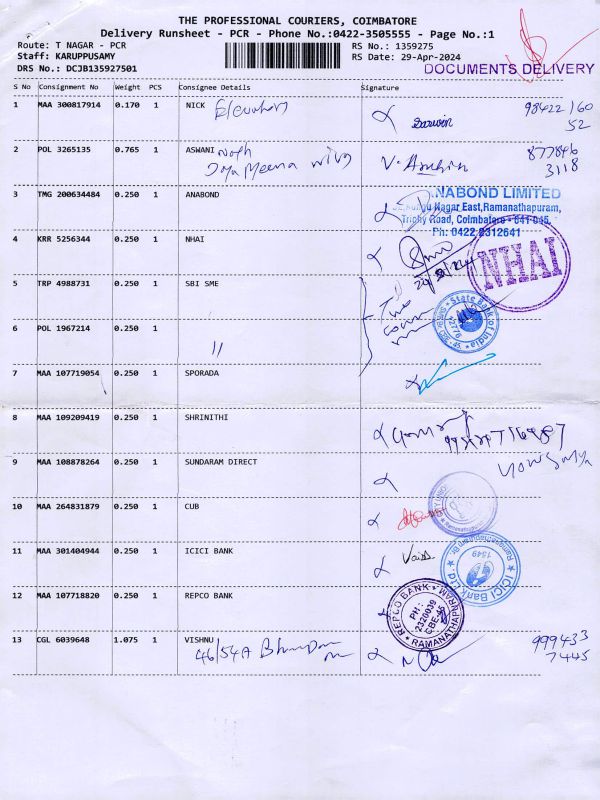 THE PROFESSIONAL COURIERS, COIMBATORE
Delivery Runsheet - PCR - Phone No.:0422-3505555 - Page No.:1
Route: T NAGAR - PCR
RS No.: 1359275
Staff: KARUPPUSAMY
RS Date: 29-Apr-2024
DRS No.: DCJB135927501
DOCUMENTS DELIVERY
S No Consignment No Weight PCS Consignee Details Signature
1 MAA 300817914 0.170 1 NICK
Darwin
98422/60
52
2 POL 3265135 0.765 1 ASWANI
877846
3118
3 TMG 200634484 0.250 1 ANABOND
ANABOND LIMITED
Nagar East, Ramanathapuram,
Trichy Road, Coimbatore - 641 045.
Ph: 0422 2312641
4 KRR 5256344 0.250 1 NHAI
NHAI
5 TRP 4988731 0.250 1 SBI SME
State Bank of India
6 POL 1967214 0.250 1
"
7 MAA 107719054 0.250 1 SPORADA
8 MAA 109209419 0.250 1 SHRINITHI
9 MAA 108878264 0.250 1 SUNDARAM DIRECT
10 MAA 264831879 0.250 1 CUB
11 MAA 301404944 0.250 1 ICICI BANK
ICICI Bank Ltd.
Ramanathapuram Br.
1549
12 MAA 107718820 0.250 1 REPCO BANK
REPCO BANK
PH:
2320939
CBE-45
RAMANATHAPURAM
13 CGL 6039648 1.075 1 VISHNU
46/54A
999433
7445